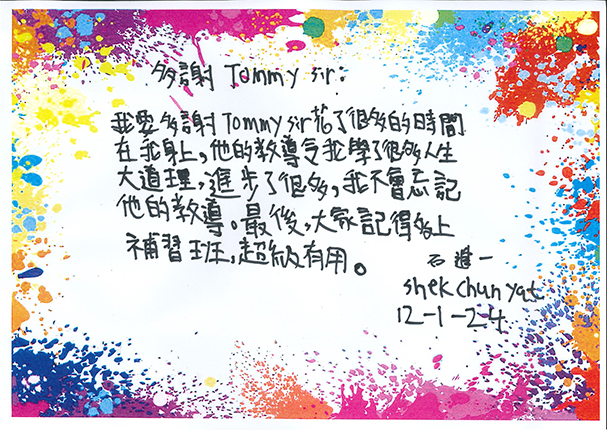 多謝 Tommy sir:
我要多謝 Tommy sir 花了很多的時間
在我身上，他的教導令我學了很多人生
大道理，進步了很多，我不會忘記
他的教導。最後，大家記得多上
補習班，超級有用。
石進一
shek chun yat
12-1-24